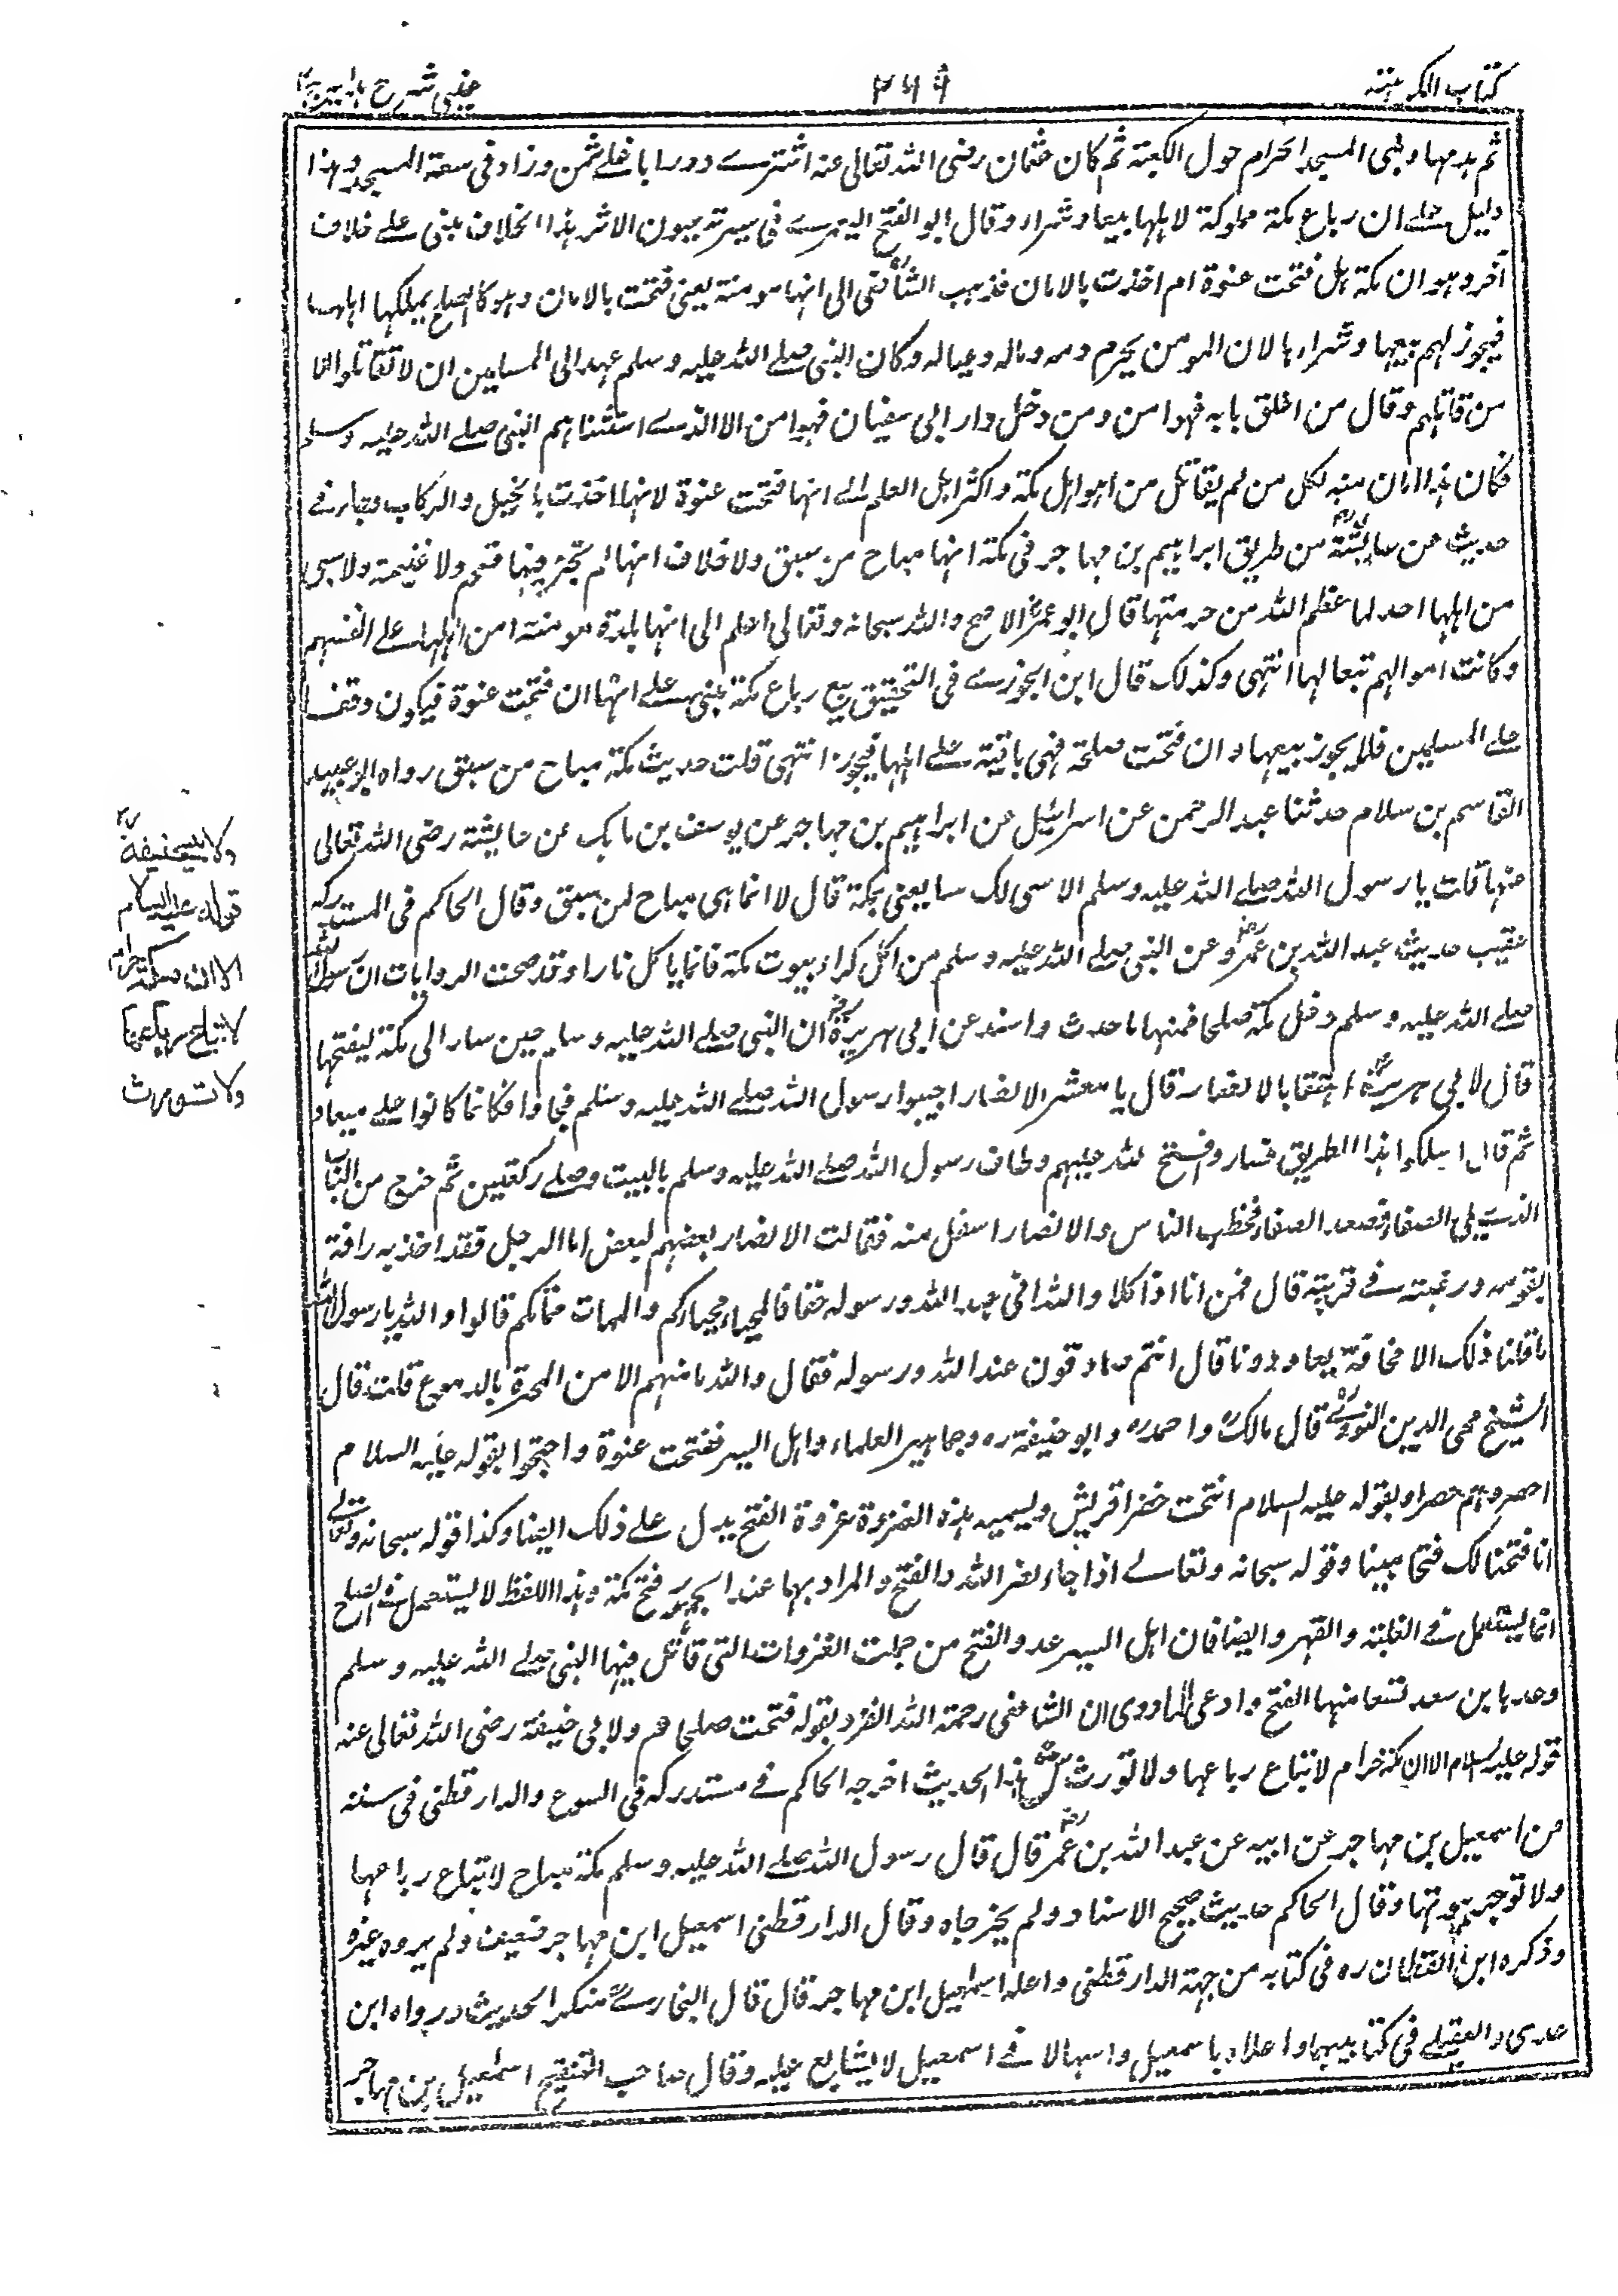 كتاب الكراهية
۲۴۹
عینی شرح ہدایہ ج۴
ثم هدمها وبنى المسجد الحرام حول الكعبة ثم كان عثمان رضى الله تعالى عنه اشترے دورا باغلے ثمن وزاد فى سعة المسجد وهذا
دليل علے ان رباع مكة مملوكة لاهلها بيعا وشراء وقال ابو الفتح اليعمرے فى سيرته عيون الاثر هذا الخلاف مبنى علے خلاف
آخر وهو ان مكة هل فتحت عنوة ام اخذت بالامان فذهب الشافعى الى انها مومنة يعنى فتحت بالامان وهو كالصلح يملكها اهلها
فيجوز لهم بيعها وشراءها لان المومن يحرم دمه وماله وعياله وكان النبى صلے الله عليه وسلم عهد الى المسلمين ان لا تقاتلوا الا
من قاتلهم وقال من اغلق بابه فهو امن ومن دخل دار ابى سفيان فهو امن الا الذے استثناهم النبى صلے الله عليه وسلم
فكان هذا امان منه لكل من لم يقاتل من اهل مكة واكثر اهل العلم الے انها فتحت عنوة لانها اخذت بالخيل والركاب وجاء فے
حديث عن عايشة رض من طريق ابراهيم بن مهاجر فى مكة انها مباح من سبق ولا خلاف انها لم تجز فيها قسم ولا غنيمة ولا سبى
من اهلها احد لما عظم الله من حرمتها قال ابو عمر الاصح والله سبحانه وتعالى اعلم الى انها بلدة مومنة امن اهلها علے انفسهم
وكانت اموالهم تبعا لها انتهى وكذلك قال ابن الجوزے فى التحقيق بيع رباع مكة مبنى علے انها ان فتحت عنوة فيكون وقفا
علے المسلمين فلا يجوز بيعها وان فتحت صلحة فهى باقية علے اهلها فيجوز انتهى قلت حديث مكة مباح من سبق رواه ابو عبيد
القاسم بن سلام حدثنا عبد الرحمن عن اسرائيل عن ابراهيم بن مهاجر عن يوسف بن ماهك عن عايشة رضى الله تعالى
عنها قالت يا رسول الله صلے الله عليه وسلم الا نبى لك بيتا يعنى بمكة قال لا انما هى مباح لمن سبق وقال الحاكم فى المستدركه
عقيب حديث عبد الله بن عمرو رض عن النبى صلے الله عليه وسلم من اكل كراء بيوت مكة فانما ياكل نارا وقد صحت الروايات ان رسول الله
صلے الله عليه وسلم دخل مكة صلحا فمنها ما حدث واسند عن ابى هريرة رض ان النبى صلے الله عليه وسلم حين سار الى مكة ليفتحها
قال لابى هريرة اهتف بالانصار قال يا معشر الانصار اجيبوا رسول الله صلے الله عليه وسلم فجاوا فكانما كانوا علے ميعاد
ثم قال اسلكوا هذا الطريق فسار وافتح الله عليهم وطاف رسول الله صلے الله عليه وسلم بالبيت وصلے ركعتين ثم خرج من الباب
الذے يلى الصفا فصعد الصفا فخطب الناس والانصار اسفل منه فقالت الانصار بعضهم لبعض اما الرجل فقد اخذ به رافة
بقومه ورغبته فے قريته قال فمن انا اذا كلا والله انى عبد الله ورسوله حقا فالمحيا محياكم والممات مماتكم قالوا والله يا رسول الله
ما قلنا ذلك الا مخافة يعاودونا قال انتم صادقون عند الله ورسوله فقال والله ما منهم الا من المحرة بالدموع قلت قال
الشيخ محى الدين النووے رح قال مالك رح واحمد رہ وابو حنيفة رہ وجماهير العلماء واهل السير ففتحت عنوة واحتجوا بقوله عليه السلام
احصروهم حصرا وبقوله عليه السلام انتحت خضرا قريش وليسميه هذه الغزوة غزوة الفتح يدل علے ذلك ايضا وكذا قوله سبحانه وتعالے
انا فتحنا لك فتحا مبينا وقوله سبحانه وتعالے اذا جاء نصر الله والفتح والمراد بها عند الجمهور فتح مكة وهذا اللفظ لا يستعمل فے الصلح
انما يستعمل فے الغلبة والقهر وايضا فان اهل السير عدوا الفتح من جملة الغزوات التى قاتل فيها النبى صلے الله عليه وسلم
وعدها ابن سعد تسعا منها الفتح وادعى الماوردى ان الشافعى رحمة الله انفرد بقوله فتحت صلحا هم ولابى حنيفة رضى الله تعالى عنه
قوله عليه السلام الا ان مكة حرام لا تباع رباعها ولا تورث ش هذا الحديث اخرجه الحاكم فے مستدركه فى البيوع والدارقطنى فى سننه
عن اسمعيل بن مهاجر عن ابيه عن عبد الله بن عمرو رض قال قال رسول الله صلے الله عليه وسلم مكة مباح لا تباع رباعها
ولا توجر بيوتها وقال الحاكم حديث صحيح الاسناد ولم يخرجاه وقال الدارقطنى اسمعيل ابن مهاجر ضعيف ولم يروه غيره
وذكره ابن القطان رہ فى كتابه من جهة الدارقطنى واعله اسمعيل ابن مهاجر قال قال البخارے منكر الحديث ورواه ابن
عدى والعقيلے فى كتابيهما واعلاه باسمعيل واسهالا فے اسمعيل لا يتابع عليه وقال صاحب التنقيح اسمعيل بن مهاجر
ولابیحنیفة رح
قوله علیه السلام
الا ان مکة حرام
لا تباع رباعها
ولا تورث